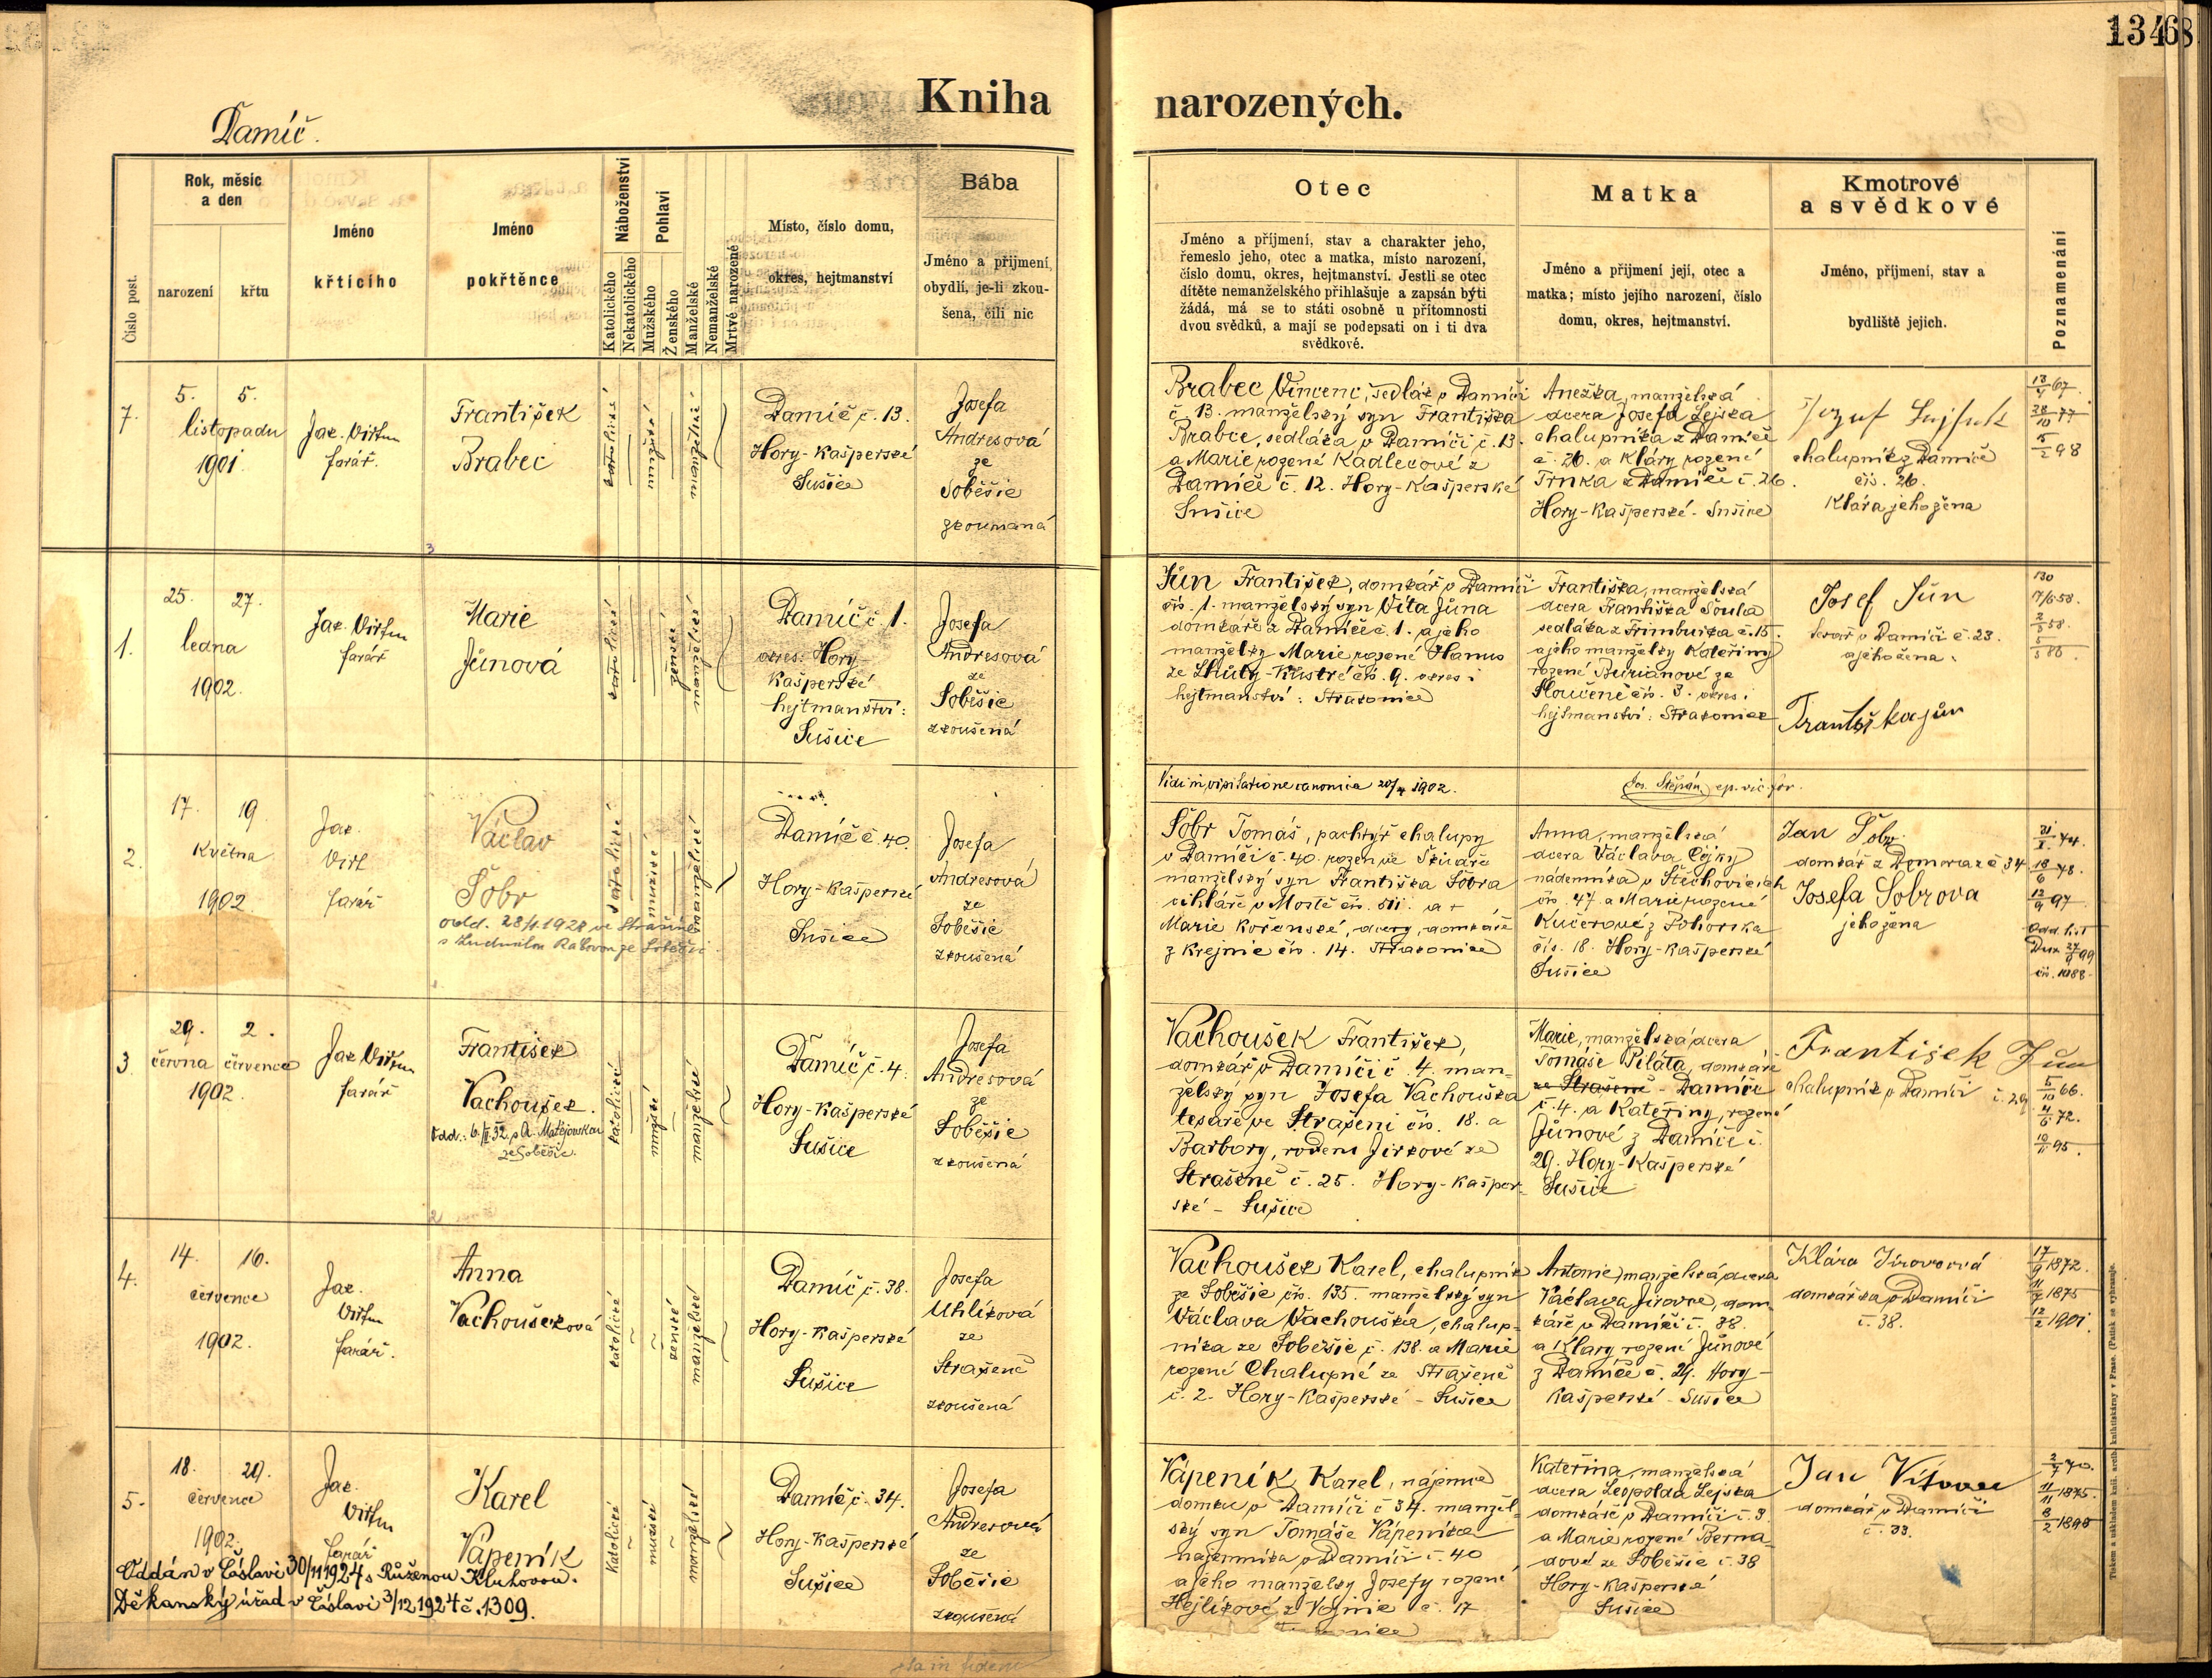 13468
Kniha narozených.
Damíč.
Číslo post.
Rok, měsíc
a den
narození
křtu
Jméno
křtícího
Jméno
pokřtěnce
Náboženství
Katolického
Nekatolického
Pohlaví
Mužského
Ženského
Manželské
Nemanželské
Mrtvě narozené
Místo, číslo domu,
okres, hejtmanství
Bába
Jméno a přijmení,
obydlí, je-li zkou-
šena, čili nic
Otec
Jméno a příjmení, stav a charakter jeho,
řemeslo jeho, otec a matka, místo narození,
číslo domu, okres, hejtmanství. Jestli se otec
dítěte nemanželského přihlašuje a zapsán býti
žádá, má se to státi osobně u přítomnosti
dvou svědků, a mají se podepsati on i ti dva
svědkové.
Matka
Jméno a přijmení její, otec a
matka; místo jejího narození, číslo
domu, okres, hejtmanství.
Kmotrové
a svědkové
Jméno, přijmení, stav a
bydliště jejich.
Poznamenání
7.
5. 5.
listopadu
1901.
farář.
František
Brabec
katolické
mužské
manželské
Damíč č. 13.
Hory-Kašperské
Sušice
Josefa
Andresová
ze
Soběšic
zkoumaná
Brabec Vincenc, sedlák v Damíči
č. 13. manželský syn Františka
Brabce, sedláka v Damíči č. 13.
a Marie rozené Kadlecové z
Damíče č. 12. Hory-Kašperské
Sušice
Anežka, manželská
dcera Josefa Lejska
chalupníka z Damíče
č. 26. a Kláry rozené
Trnka z Damíče č. 26.
Hory-Kašperské - Sušice
chalupník z Damíče
čís. 26.
Klára jeho žena
13/4 67.
28/10 77
5/2 98
1.
25. 27.
ledna
1902.
farář
Marie
Jůnová
katolické
ženské
manželské
Damíč č. 1.
okres: Hory-
Kašperské
hejtmanství:
Sušice
Josefa
Andresová
ze
Soběšic
zkoušená
Jůn František, domkář v Damíči
čís. 1. manželský syn Víta Jůna
domkáře z Damíče č. 1. a jeho
manželky Marie rozené Hanus
ze čís. 9. okres i
hejtmanství: Strakonice
Františka, manželská
dcera Františka Šoula
sedláka z č. 15.
a jeho manželky Kateřiny
rozené Burianové ze
čís. 3. okres i
hejtmanství: Strakonice
Josef Jůn
v Damíči č. 23.
a jeho žena
Františka Jůn
Vidi in visitatione canonica 1902. Jos. Štěpán, ep. vic. for.
2.
17. 19
Května
1902
farář
Václav
Šobr
odd. 28/4. 1928 ve Strašíně
s Ludmilou ze Soběšic
katolické
mužské
manželské
Damíč č. 40.
Hory-Kašperské
Sušice
Josefa
Andresová
ze
Soběšic
zkoušená
Šobr Tomáš, pachtýř chalupy
v Damíči č. 40. rozen ve
manželský syn Františka Šobra
cihláře v Mostě čís. 511. a
Marie Kořenské, dcery domkáře
z Krejnic čís. 14. Strakonice
Anna, manželská
dcera Václava
nádenníka v Štěchovicích
čís. 47. a Marie rozené
Kučerové z Pohorska
čís. 18. Hory-Kašperské
Sušice
Jan Šobr
domkář z Domoraz č 34
Josefa Šobrova
jeho žena
18/6 78.
12/9 97
čís. 1088
3.
29. 2.
června července
1902.
farář
František
Vachoušek.
Odd.: 6./II. 32. s A. Matějovskou
ze Soběšic.
katolické
mužské
manželské
Damíč č. 4.
Hory-Kašperské
Sušice
Josefa
Andresová
ze
Soběšic
zkoušená
Vachoušek František,
domkář v Damíči č. 4. man-
želský syn Josefa Vachouška
tesaře ve Strašeni čís. 18. a
Barbory, rozené Jirkové ze
Strašeně č. 25. Hory-Kašper-
ské - Sušice
Marie, manželská dcera
Tomáše Piláta, domkáře
ze Strašeně - Damíče
č. 4. a Kateřiny, rozené
Jůnové z Damíče č.
29. Hory-Kašperské
Sušice
František Jůn
chalupník v Damíči č. 29.
5/10 66.
4/6 72.
95.
4.
14. 16.
července
1902.
Jak.
farář.
Anna
Vachoušková
katolické
ženské
manželské
Damíč č. 38.
Hory-Kašperské
Sušice
Josefa
Uhlíková
ze
Strašeně
zkoušená
Vachoušek Karel, chalupník
ze Soběšic čís. 135. manželský syn
Václava Vachouška, chalup-
níka ze Soběšic č. 138. a Marie
rozené Chalupné ze Strašeně
č. 2. Hory-Kašperské - Sušice
Antonie, manželská dcera
Václava Jirovce, dom-
káře v Damíči č. 38.
a Kláry rozené Jůnové
z Damíče č. 29. Hory-
Kašperské - Sušice
Klára Jirovcová
domkářka v Damíči
č. 38.
17/9 1872.
11/7 1875
12/2 1901.
5.
18. 20.
července
1902.
Jak.
farář
Karel
Vápeník
Oddán v Čáslavi 30/11 1924 s Růženou Kluhovou.
Děkanský úřad v Čáslavi 3/12 1924 č. 1309.
Katolické
mužské
manželské
Damíč č. 34.
Hory-Kašperské
Sušice
Josefa
Andresová
ze
Soběšic
zkoušená
Vápeník Karel, nájemce
domku v Damíči č 34. manžel-
ský syn Tomáše Vápeníka
nájemníka v Damíči č. 40
a jeho manželky Josefy rozené
Hejlíkové z Vojnic č. 17
Kateřina, manželská
dcera Leopolda Lejska
domkáře v Damíči č. 3.
a Marie rozené Berna-
dové ze Soběšic č. 38
Hory-Kašperské
Sušice
Jan
domkář v Damíči
č. 33.
2/7 70.
11/11 1875.
Tiskem a nákladem knih. arcib. knihtiskárny v Praze. (Patisk se vyhrazuje.